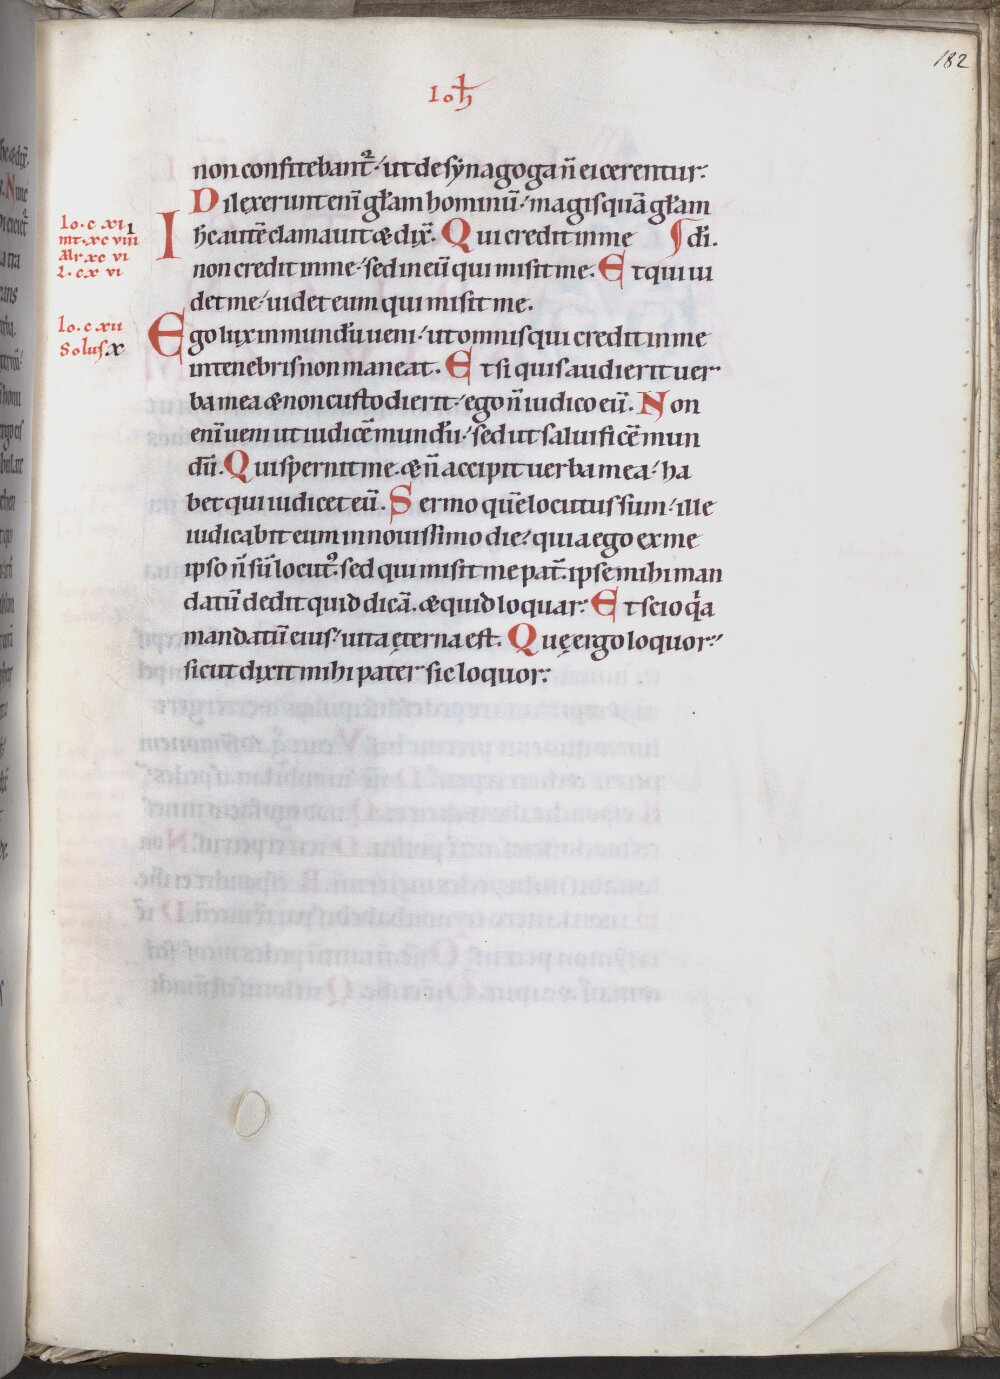 182
Ioh
non confitebant᷑ ut de synagoga n̄ eicerentur.
Dilexerunt eni᷑ gl̄am hominū magis quā gl̄am
Ih̄c autē clamauit & dix̄. Qui credit in me dī.
non credit in me sed in eū qui misit me. Et qui ui
det me uidet eum qui misit me.
Ego lux in mundū ueni ut omnis qui credit in me
in tenebris non maneat. Et si quis audierit uer
ba mea & non custodierit ego n̄ iudico eū. Non
enī ueni ut iudicē mundū sed ut saluificē mun
dū. Qui spernit me. & n̄ accipit uerba mea ha
bet qui iudicet eū. Sermo quē locutus sum ille
iudicabit eum in nouissimo die quia ego ex me
ipso n̄ sū locut᷒. sed qui misit me pat̄. ipse mihi man
datū dedit quid dicā. & quid loquar. Et scio qͥa
mandatū eius uita ęterna est. Quę ergo loquor
sicut dixit mihi pater sic loquor.
Io. c xii
mt. xc viii
Mr. xc vi
L. c x vi
Io. c xii
Solus x